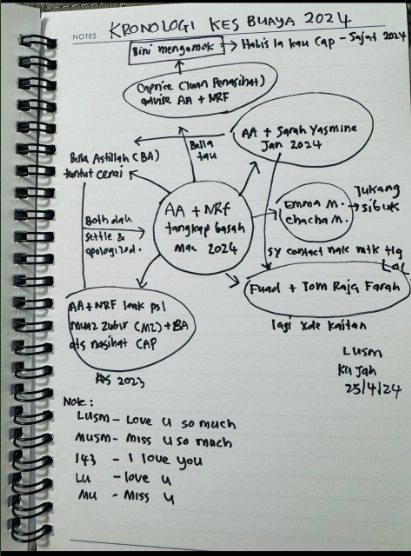 NOTES
KRONOLOGI KES BUAYA 2024
Bini mengamok → Habis la kau Cap - Sajat 2024
Caprice (Tuan Penasihat)
advise AA + NRF
Bella
tau
AA + Sarah Yasmine
Jan 2024
Bella Astillah (BA)
tuntut cerai
AA + NRF
tangkap basah
Mac 2024
Emma M.
Chacha M.
Tukang
Sibuk
Both dah
settle &
apologized.
sy contact nak mtk tlg
Fuad + Tom Raja Farah
lagi xde kaitan
AA+NRF leak psl
(MZ) + BA
ats nasihat CAP
2023
LUSM
Ku Jah
25/4/24
Note:
LUSM - Love u so much
MUSM - Miss u so much
143 - I love you
LU - love u
MU - Miss u